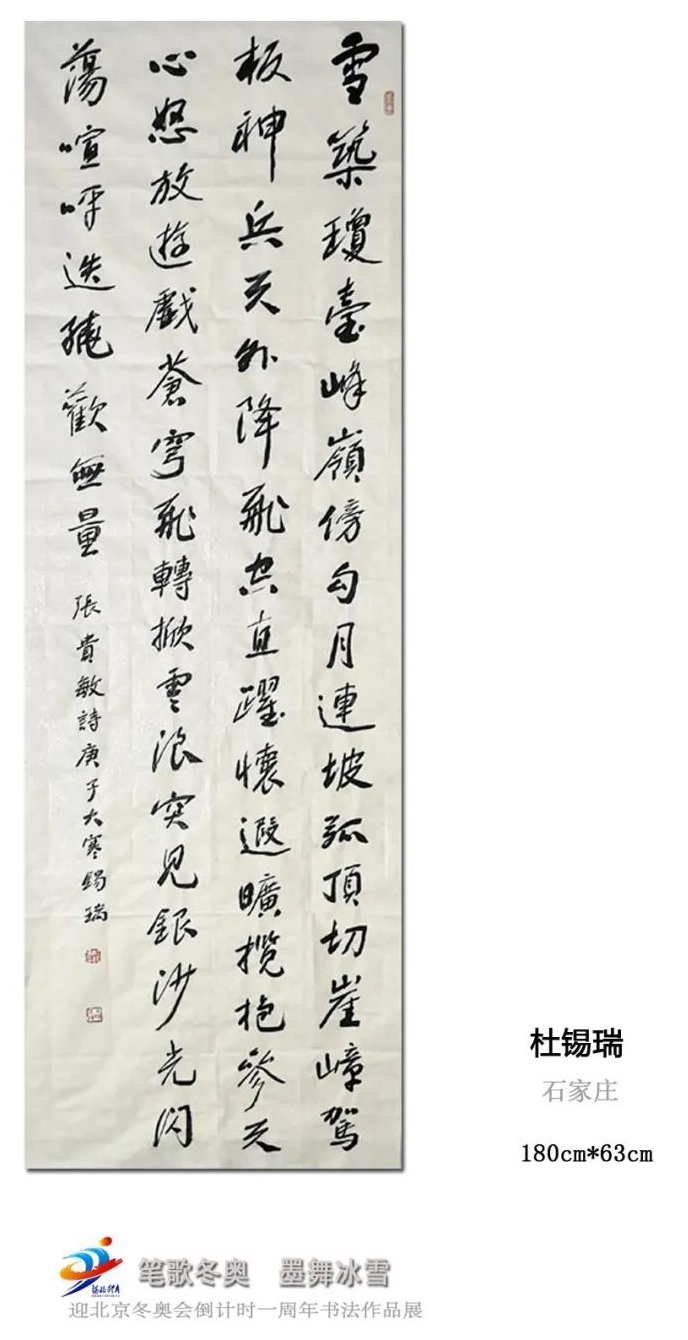 雪築瓊臺峰嶺傍勾月連坡弧頂切崖嶂駕
板神兵天外降飛空直躍懷遐曠攬抱參天
心怒放遊戲蒼穹飛轉掀雲浪突見銀沙光閃
蕩喧呼迭繞歡無量
張貴敏詩庚子大寒錫瑞
杜锡瑞
石家庄
180cm*63cm
笔歌冬奥 墨舞冰雪
迎北京冬奥会倒计时一周年书法作品展